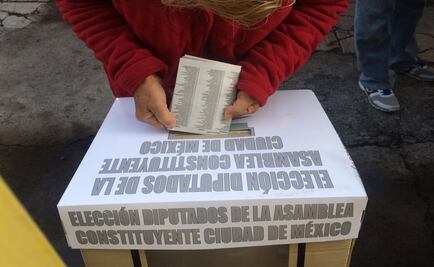 ELECCIÓN DIPUTADOS DE LA
ASAMBLEA CONSTITUYENTE
CIUDAD DE MÉXICO
ELECCIÓN DIPUTADOS DE LA ASAMBLEA
CONSTITUYENTE CIUDAD DE MÉXICO